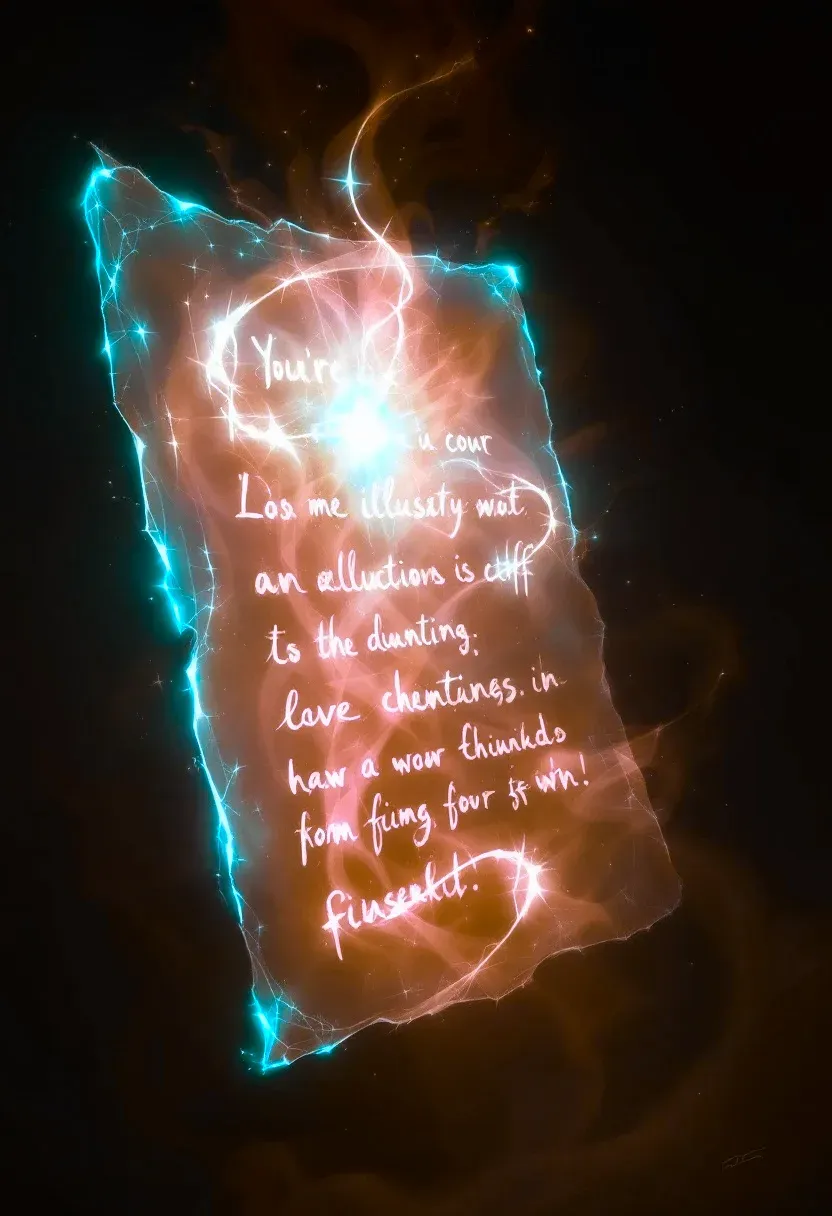 You're
u cour
Los me illusaty wat
an alluctions is cliff
ts the dunting;
lave chemtings. in
haw a wow thiunkds
fom fiimg four wn!
fiusekd!